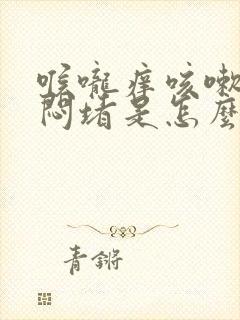 喉嚨痒咳嗽
悶堵是怎麼
青锵